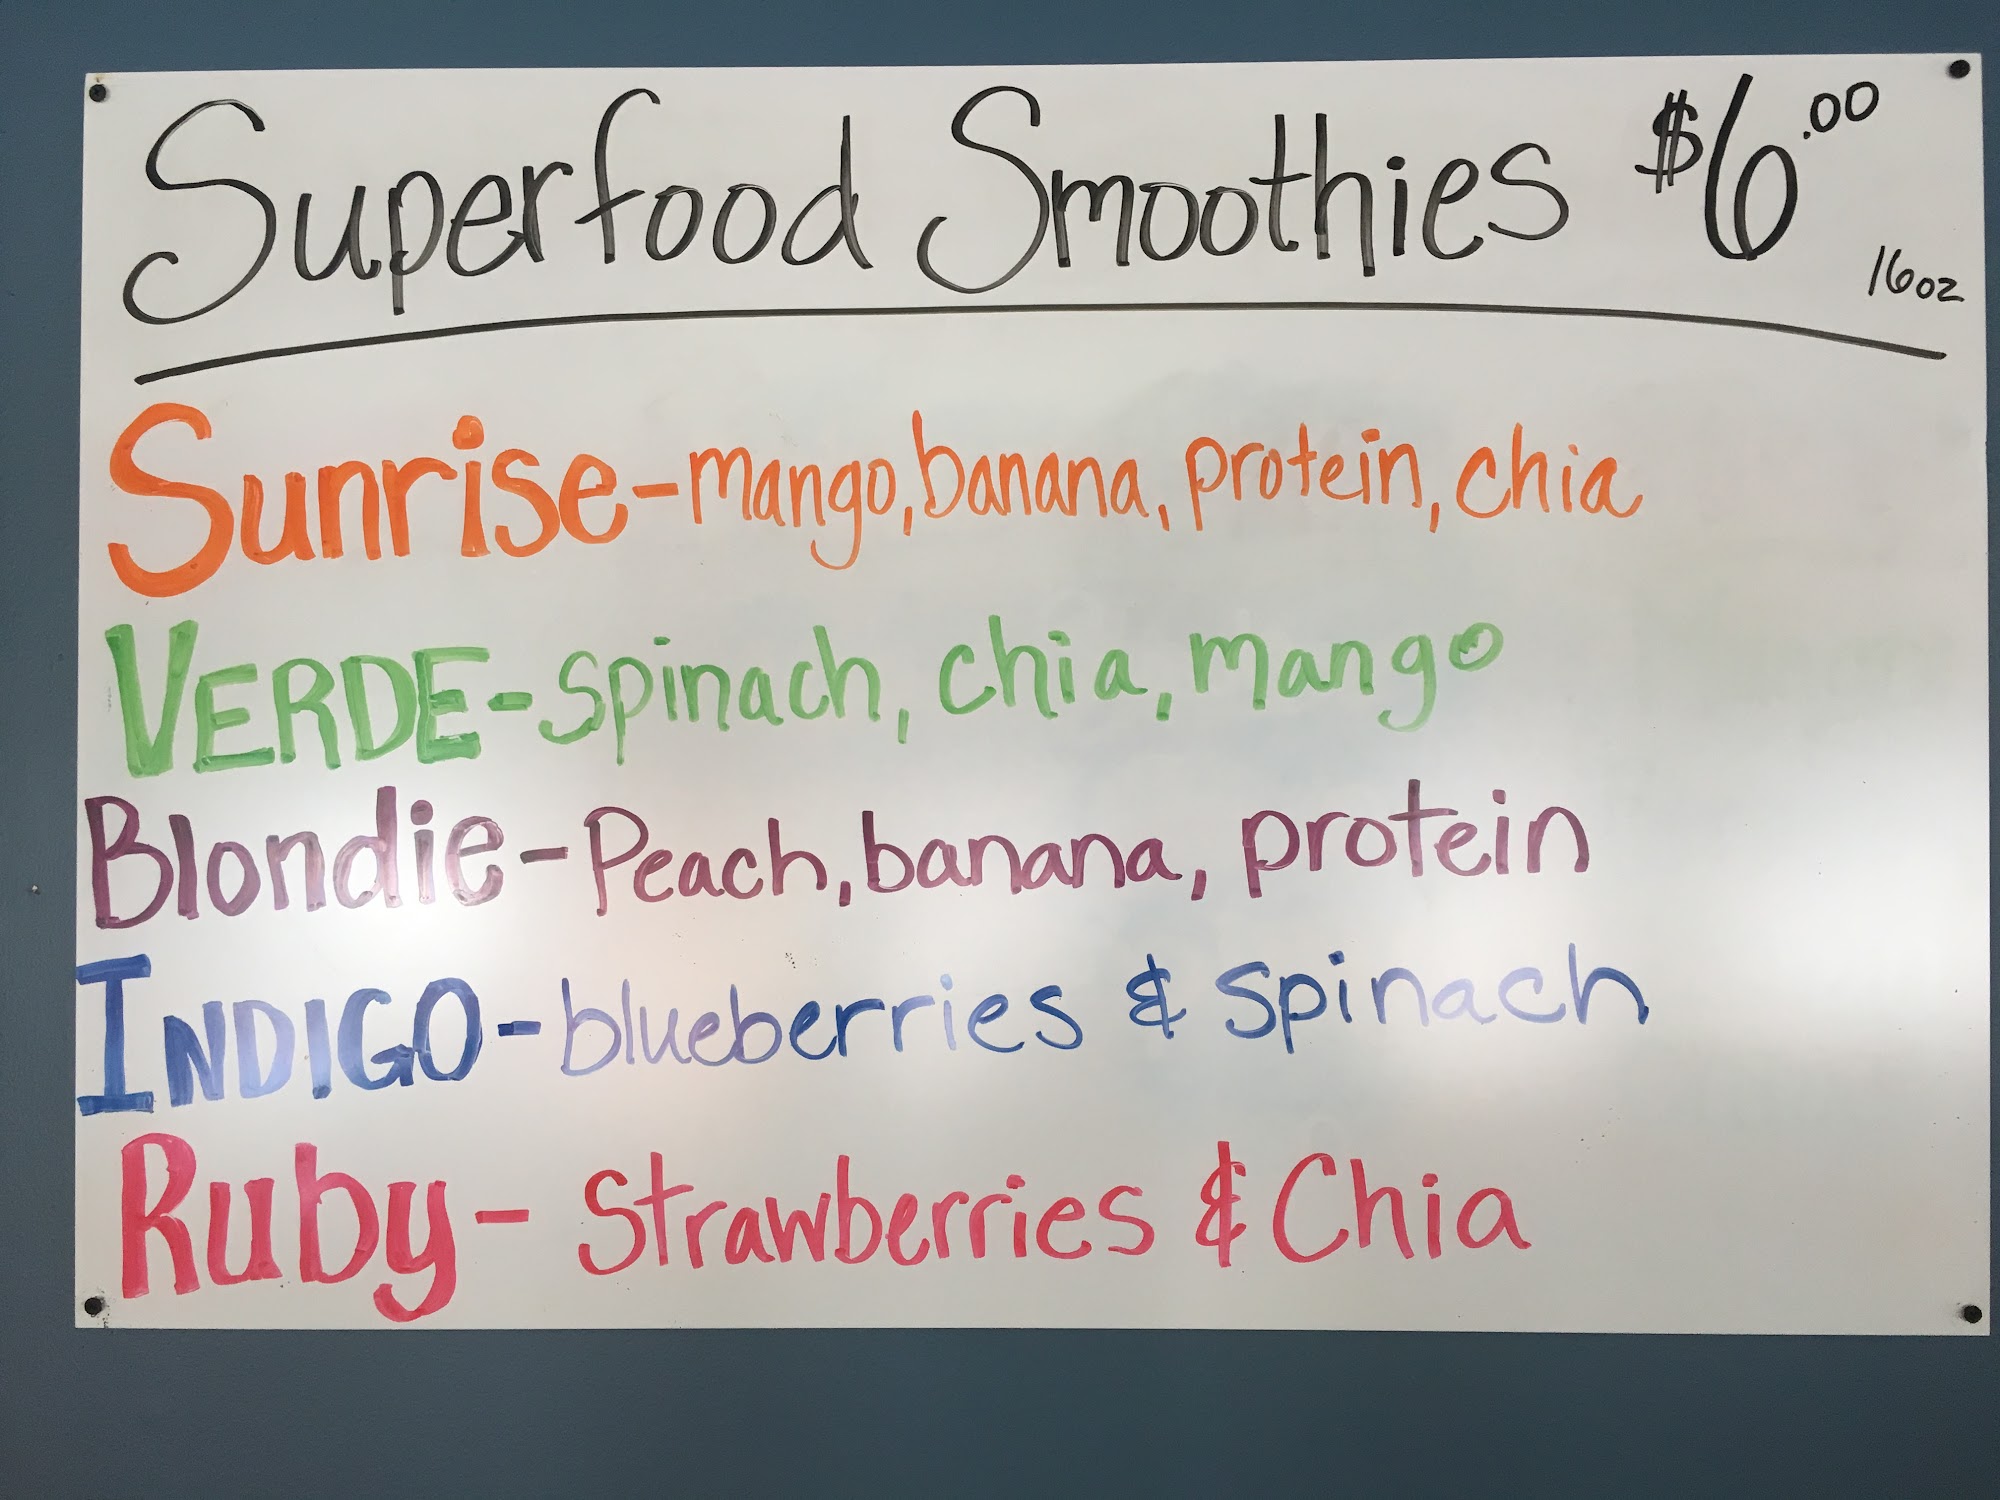 Superfood Smoothies $6.00
16oz
Sunrise-mango, banana, protein, chia
VERDE-spinach, chia, mango
Blondie-Peach, banana, protein
INDIGO-blueberries & spinach
Ruby- Strawberries & Chia